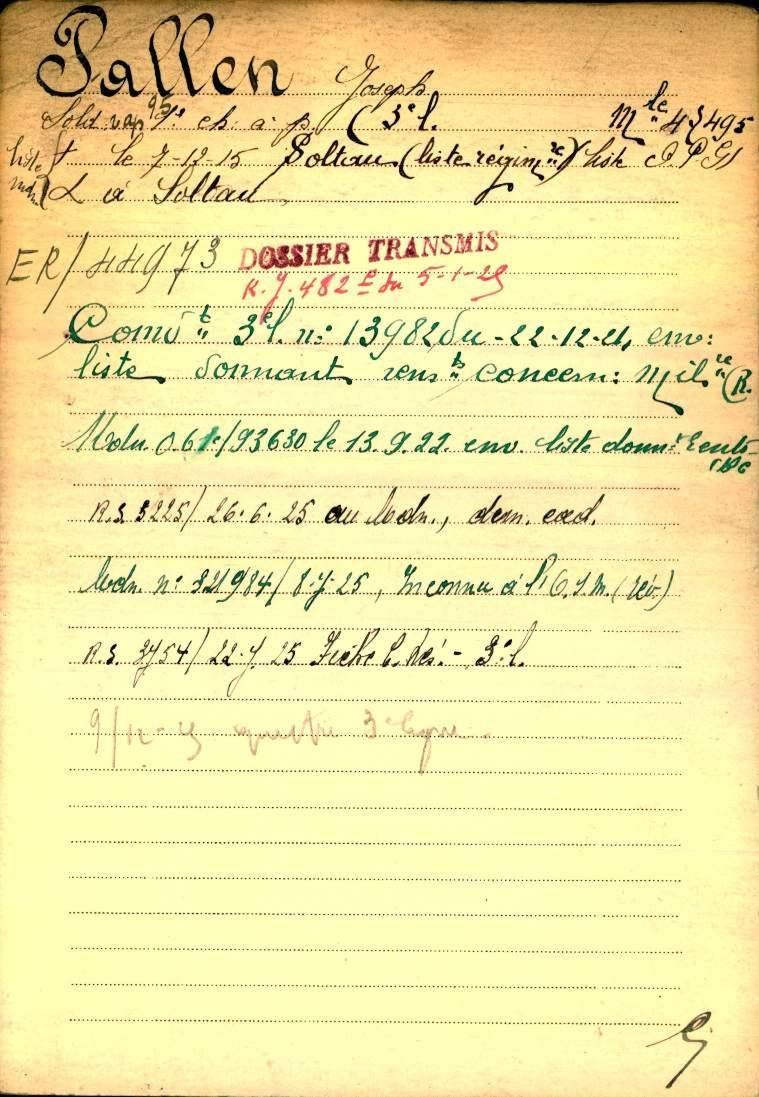 Pallen Joseph
Sold 1er ch. à p. (3e l. Mle 43495
liste † le 7-12-15 Soltau (liste régimre) liste
à Soltau
ER/44973 DOSSIER TRANSMIS
R.J. 482 E du 5-1-25
Comt 3e l. n° 13982 du - 22-12-21, env:
liste donnant rensts concern: milre (R.
Mdn 061e/93630 le 13.9.22. env. liste donnt
R.S. 3225/ 26.6.25 au Mdn., dem. cad.
Mdn. n° 321984/ 8-7-25, Inconnu à l'O.I.M. (rév)
R.S. 3754/ 22.7.25 Fiche - 3e l.
9/12-25 3e ligne.